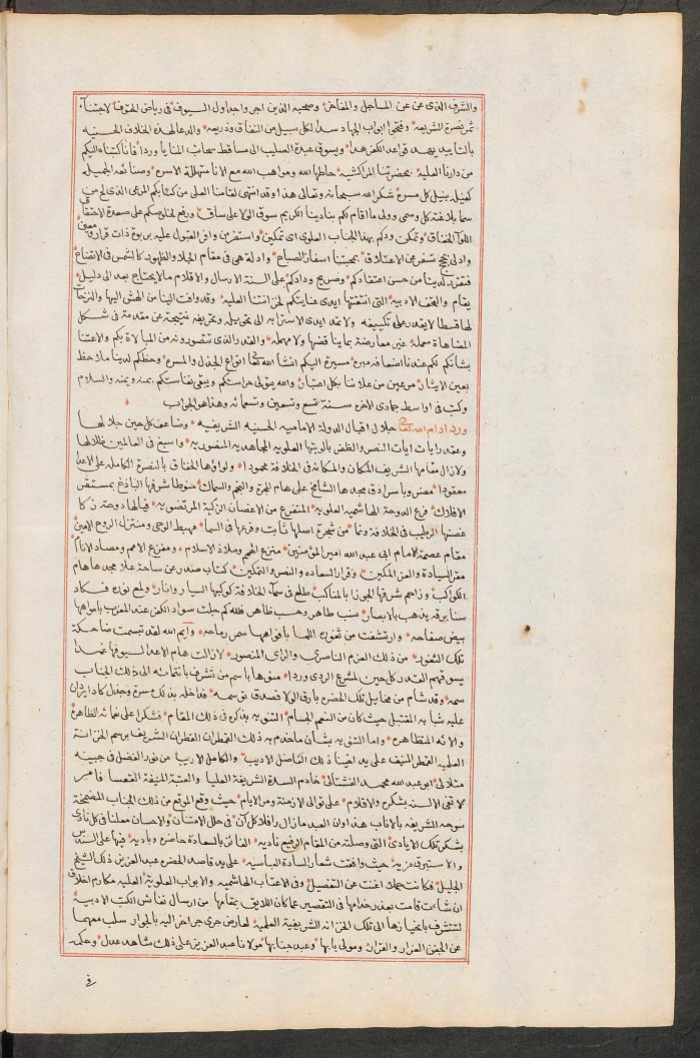 والشرف الذي عن عن المساجل والمفاخر وصحبه الذين اجروا جداول السيوف في رياض الحتوف لاجتناء
ثمر نصرة الشريعه وفتحوا ابواب الجهاد سدا لكل سبيل من النفاق وذريعه والدعا لهذه الخلافة الحسنيه
بالتاييد يهد قواعد الكفر هدا ويسوق عبدة الصليب الى مساقط سحائب المنايا وردا فانا كتبناه اليكم
من دارنا العلية بحضرتنا المراكشية حاطها الله ومواهب الله مع الانا متهللة الاسره وصنائعه الجميله
كفيله بنيل كل مسره شكرا لله سبحانه وتعالى هذا وقد انتهى لمقامنا العلى من كتابكم المرعي الذي لم من
سما بلاغته كل وسمى وولى ما اقام لكم بنادينا الكريم سوق الولا على ساق ورفع لخلوصكم على صعدة الاحتفا
اللوا الخفاق وتمكن ودكم بهذا الجناب العلوى اى تمكين واستقر من وافر القبول عليه بربوة ذات قرار ومعين
وادلى بحجج تسفر عن الاعتلاق بمحبتنا اسفار الصباح وادلة هي في مقام الجلا والظهور كالشمس في الاتضاح
فتقرر لدينا من حسن اعتقادكم وصريح ودادكم على السنة الارسال والاقلام ما لا يحتاج بعد الى دليل
يقام والتحف الادبية التي انتقتها ايدى عنايتكم لخزانتنا العلية وقد وافت الينا من الهش اليها والترحاب
لها قسطا لا يقدر على تكييفه ولا تمد ايدى الاسترابه الى تحويله وتحريفه نتيجة عن مقدمة في شكل
المضاهاة مسلمة غير معارضة بما يناقضها ولا مهمله والقدر الذي تتصورنه من المبالاة بكم والاعتنا
بشانكم لكم عندنا اضعافه مبره مسيرة اليكم انشا الله تعالى انواع الجذل والمسره وحظكم لدينا ملاحظ
بعين الايثار مرعيين من علائنا بكل اعتبار والله يتولى حراستكم ويبقى نفاستكم بمنه ويمنه والسلام
وكتب في اواسط جمادى الاخرى سنة تسع وتسعين وتسعمائه وهذا هو الجواب
ورد ادام الله تعالى جلال اقبال الدولة الامامية الحسنيه الشريفيه وضاعف كل حين جلالها
وعقد رايات ايات النصر والظفر بالويتها العلوية المجاهديه المنصوريه واسبغ في العالمين ظلالها
ولا زال مقامها الشريف المكان والمكانه في الخلافة محمودا ولواؤها الخفاق بالنصرة الكاملة على الاعدا
معقودا مضروبا سرادق مجدها الشامخ على هام المجرة والنجم والسماك منوطا شرفها الباذخ بمستقر
الافلاك فرع الدوحة الهاشميه العلويه المتفرع من الاغصان الزكية المرتضويه فيالها دوحة زكا
غصنها الرطيب في الخلافة ونما من شجرة اصلها ثابت وفرعها في السما مهبط الوحى ومتنزل الروح الامين
مقام عصمة الامام ابي عبد الله امير المؤمنين منزع الهمم وملاذ الاسلام ومفزع الامم ومصاد الانام
مقر السيادة والعز المكين وقرار السعاده والنصر والتمكين كتاب صدر عن ساحة علا مجدها هام
الكواكب وزاحم شرفها الجوزا بالمناكب طلع في سماء الخلافة كوكبها السيار وانار ولمع نوره فكاد
سنا برقه يذهب بالابصار نسب طاهر وحسب ظاهر فلله كم جلت سواد الكفر عند المغرب بامواهها
بيض صفاحه وارتشفت من ثغوره اللما بافواهها سمر رماحه وايم الله لقد تبسمت ضاحكة
تلك الثغور من ذلك العزم الناصري والراى المنصور لا زالت هام الاعدا لسيوفها غمدا
يسوقهم القدر كل حين لمشرع الردى وردا منوها باسم من تشرف بانتمائه الى ذلك الجناب
سمه وقد شام من مخايل تلك الحضرة بارق الولا فصدق توسمه فداخله بذلك مسرة وجذل كاد ايزان
عليه شبابه المقتبل حيث كان من النعم الجسام التنويه بذكره في ذلك المقام فشكرا على نعمائه الظاهره
والائه المتظاهره واما التنويه بشان ما خدم به ذلك القمطران القمطران الشريف برسم الخزانة
العلميه القطر المنيف على يد لقينا ذلك الفاضل الاديب والكامل الاريب من نور الفضل في جبينه
متلالئ ابو عبد الله محمد الفشتالي خادم السدة الشريفة العليا والعتبة المنيفة القعسا فامر
لا تفى الالسنه بشكره والاقلام على توالى الازمنة ومر الايام حيث وقع الموقع من ذلك الجناب المضمخة
سوحه الشريفه بالاناب هذا وان العبد ما زال رافلا كل آن في حلل الامتنان والاحسان معلنا في كل نادى
بشكر تلك الايادى التي وصلته من المقام الرفيع ناديه الفائز بالسعادة حاضره وباديه فيها على السندس
والاستبرق مزيه حيث وافقت شعار السادة العباسيه على يد قاصد الحضره عبد العزيز ذلك الشيخ
الجليل فكانت جملا اغنت عن التفصيل وفي الاعتاب الهاشميه والابواب العلويه العليه مكارم اخلاق
ان شانت قامت بعذر خدامها في التقصير عما كان اللايق بمقامها من ارسال نفائس الكتب الادبية
لتتشرف بانحيازها الى تلك الخزانه الشريفية العلمية لعارض جرى جر اخر اليه بالجوار سلب معهما
عن الجفن الغرار والقرار ومولى بابها وعبد جنابها مولانا عبد العزيز على ذلك شاهد عدل وحكمه
في